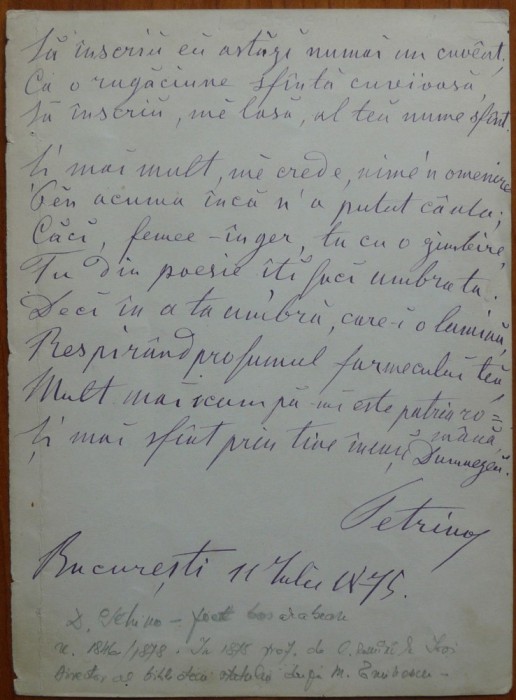 Să înscriŭ eŭ astăzĭ numaĭ un cuvênt,
Ca o rugăciune sfîntă cuviósă,
Să înscriŭ, mĕ lasă, al tĕŭ nume sfânt.
Și maĭ mult, mĕ crede, nime 'n omenire
Pên acuma încă n'a putut cânta;
Căcĭ, femee-înger, tu cu o zîmbire,
Tu din poesie îțĭ facĭ umbra ta.
Decĭ în a ta umbră, care-ĭ o lumină,
Respirând profumul farmeculuĭ tĕŭ,
Mult maĭ scumpă-mĭ este patria ro=
mână,
Și maĭ sfînt prin tine însușĭ Dumnezeŭ.
Petrino
Bucureștĭ 11 Iulie 1875.
D. Petrino – poet basarabean
n. 1846/1878. In 1875 prof. de la Iași
Director al bibliotecii statului după M. Eminescu